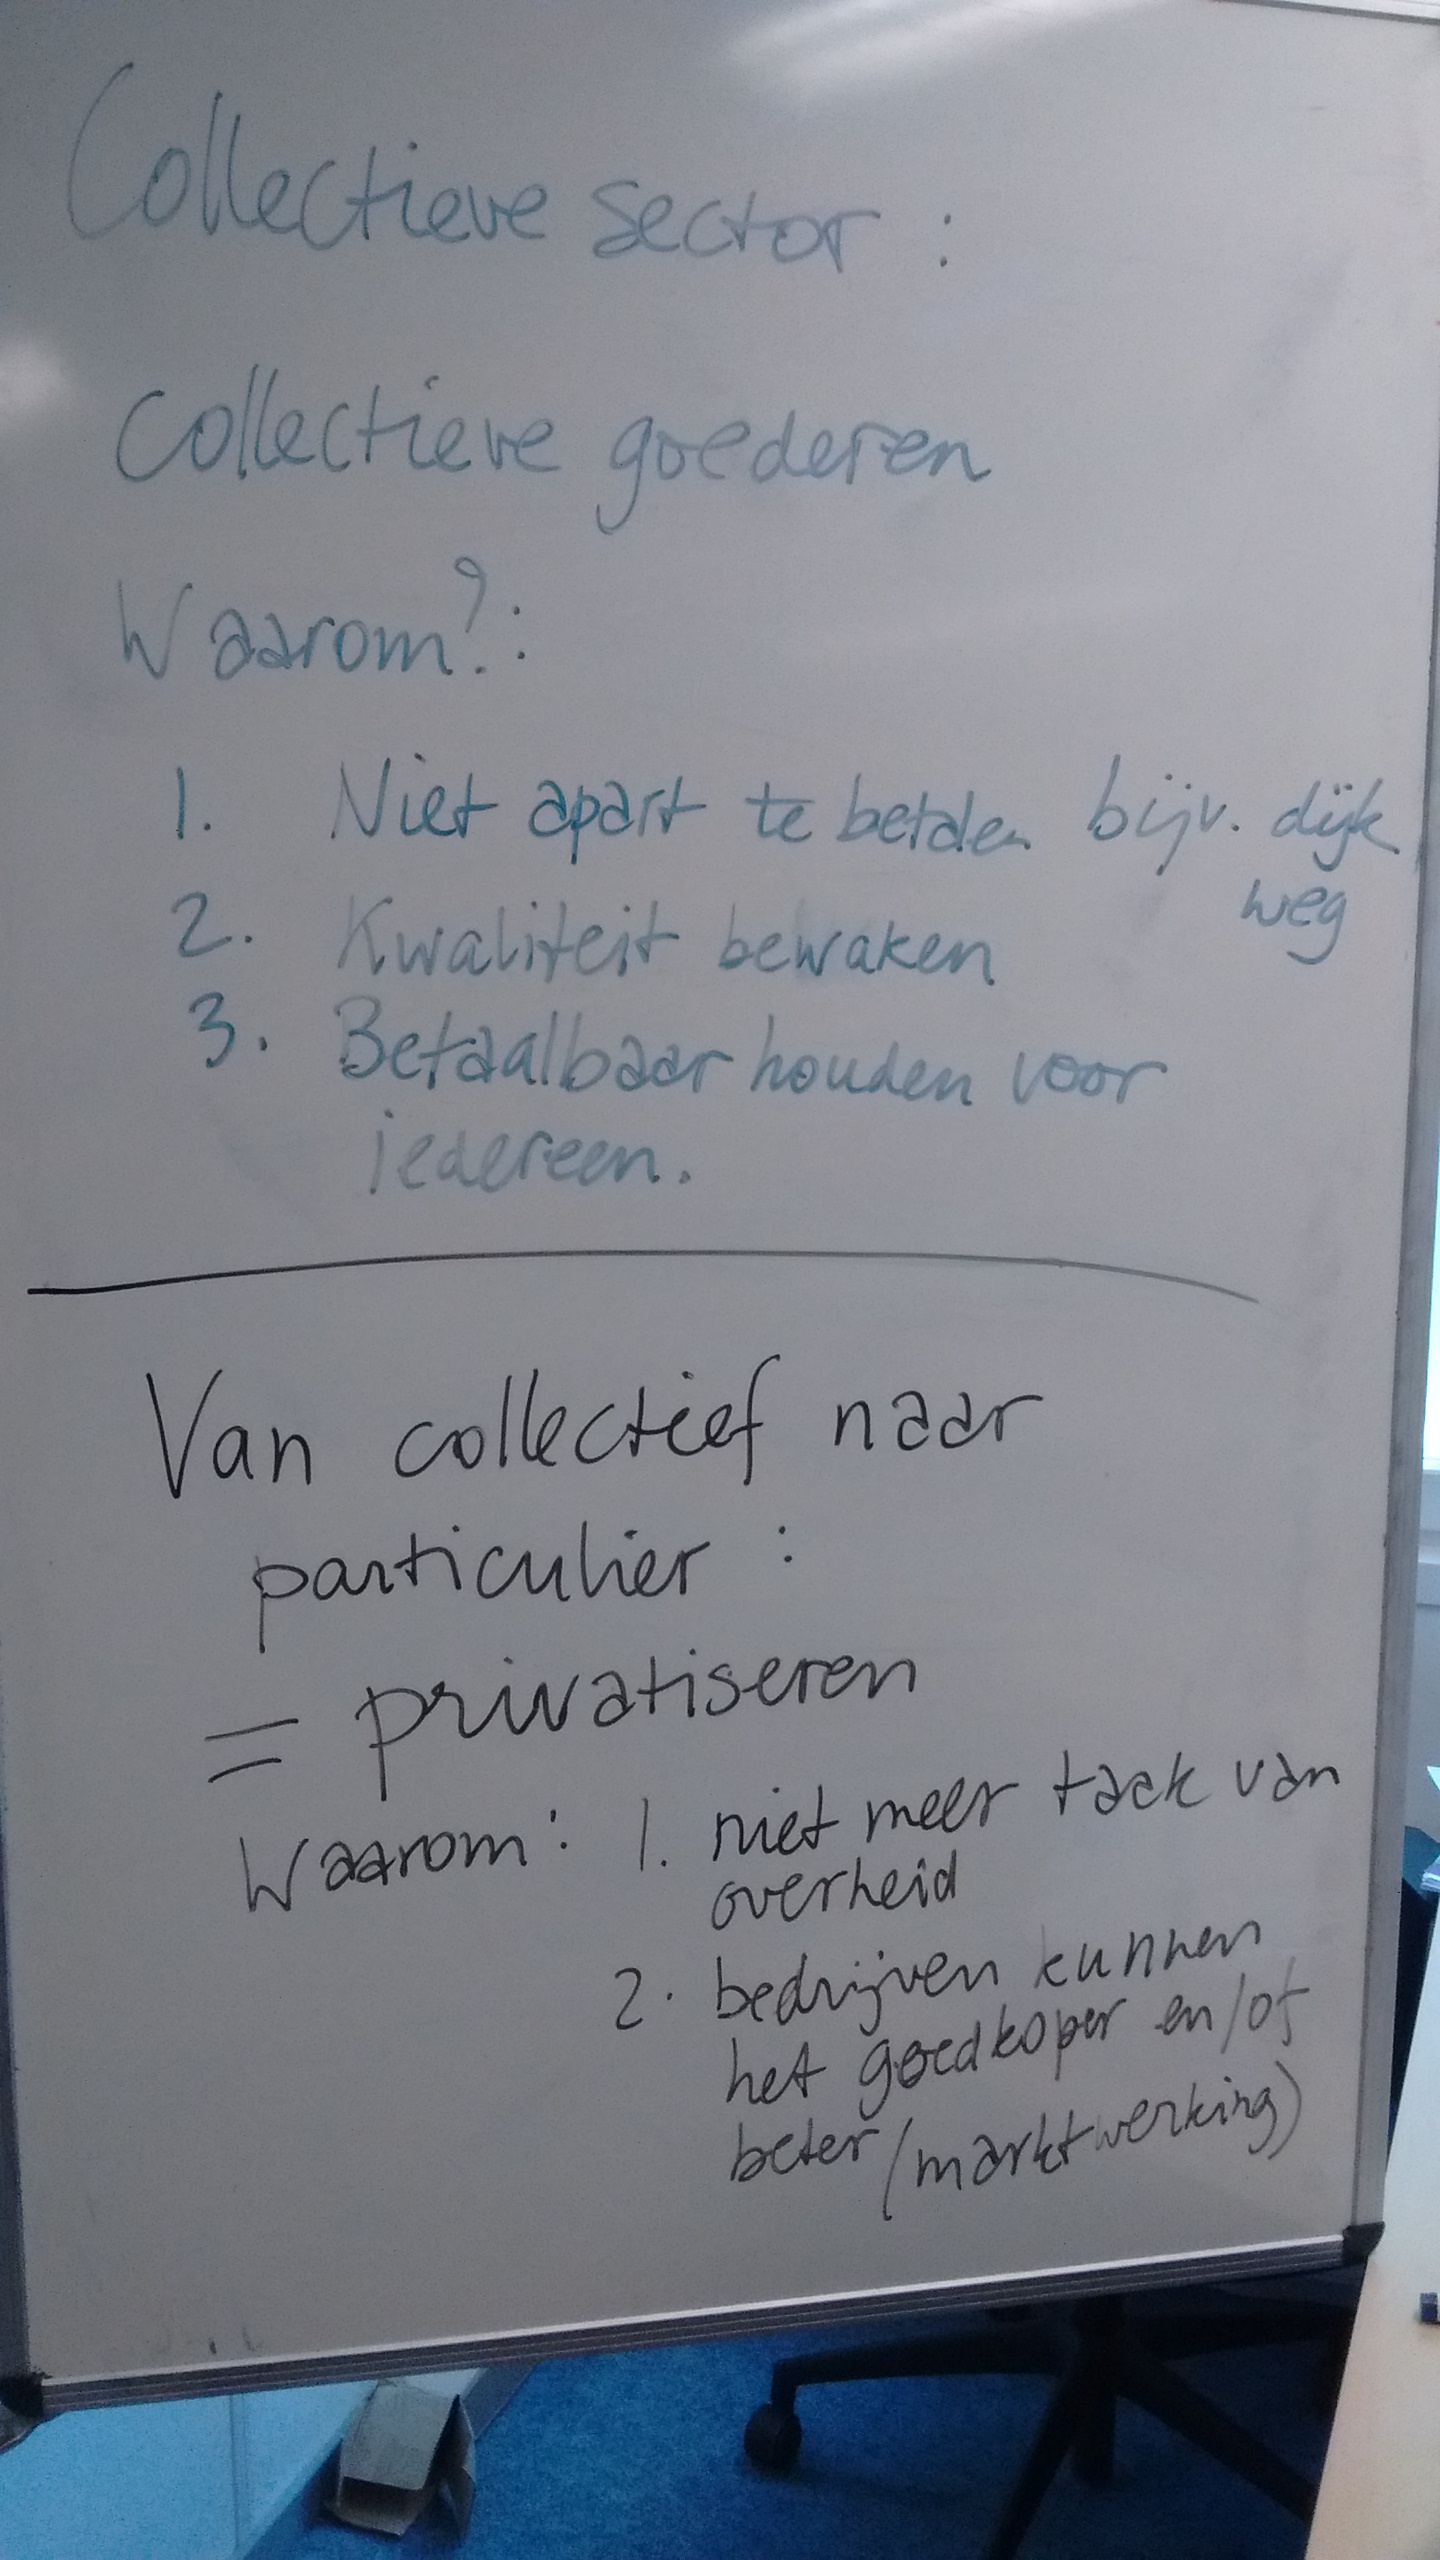 Collectieve sector :
Collectieve goederen
Waarom?:
1. Niet apart te betalen bijv. dijk
weg
2. Kwaliteit bewaken
3. Betaalbaar houden voor
iedereen.
Van collectief naar
particulier :
= privatiseren
Waarom: 1. niet meer taak van
overheid
2. bedrijven kunnen
het goedkoper en/of
beter (marktwerking)